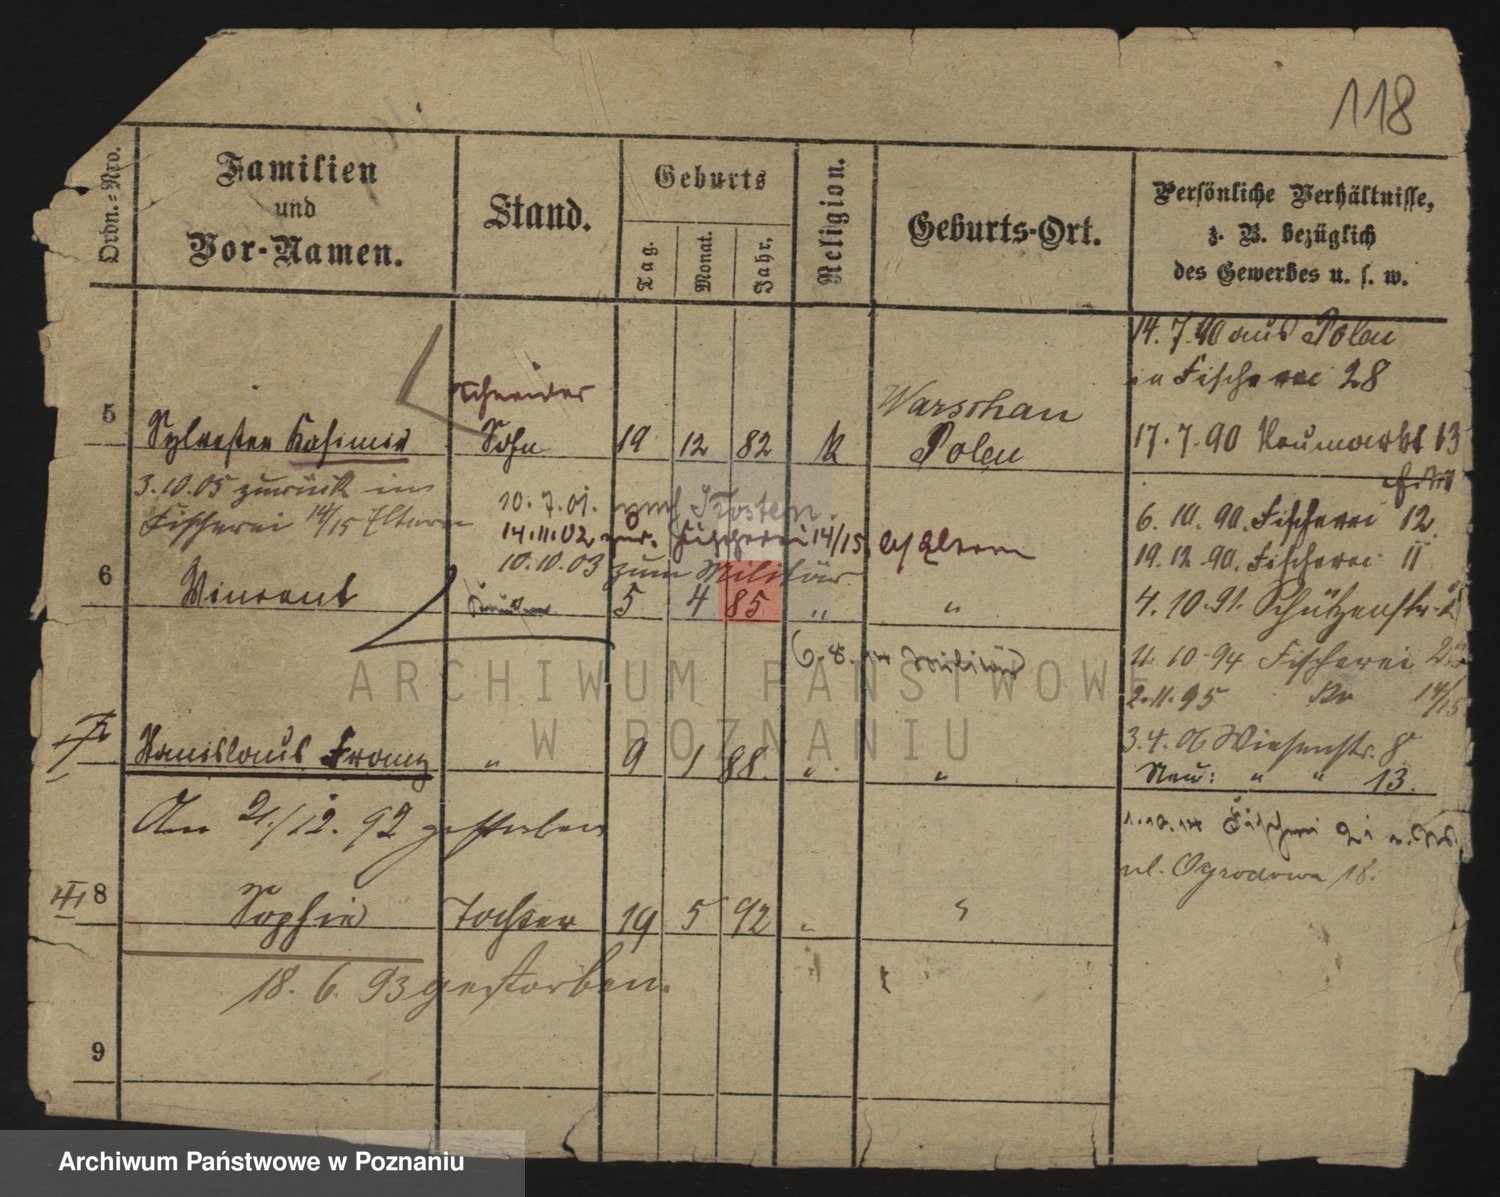 118
Ordn.-Nro.
Familien
und
Vor-Namen.
Stand.
Geburts
Tag.
Monat.
Jahr.
Religion.
Geburts-Ort.
Persönliche Verhältnisse,
z. B. bezüglich
des Gewerbes u. s. w.
14. 7. 90 aus Polen
in Fischerei 28
17. 7. 90 Neumarkt 13
6. 10. 90. Fischerei 12
19. 12. 90. Fischerei 11
4. 10. 91. Schützenstr.
11. 10. 94 Fischerei
2. 11. 95 14/15
3. 4. 06 Wiesenstr. 8
Neu: " " 13.
1. 10. 14 Fischerei 21
ul. Ogrodowa 18.
Schneider
5 Sylvester Kasimir Sohn 19 12 82 k Warschau
Polen
3. 10. 05 zurück in
Fischerei 14/15 Eltern
10. 7. 01. nach Kosten.
14. 11. 02 zur. Fischerei 14/15 Eltern
10. 10. 03 zum Militär
6 Vincent 5 4 85 " "
zum Militär
Stanislaus Franz " 9 1 88. " "
Am 21/12. 92 gestorben
8 Sophie Tochter 19 5 92 "
18. 6. 93 gestorben.
9
ARCHIWUM PAŃSTWOWE
W POZNANIU
Archiwum Państwowe w Poznaniu